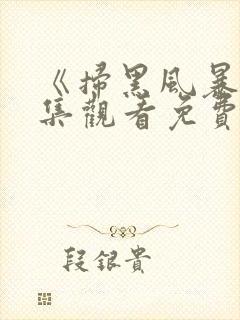 《掃黑風暴
集觀看免費
段銀貴